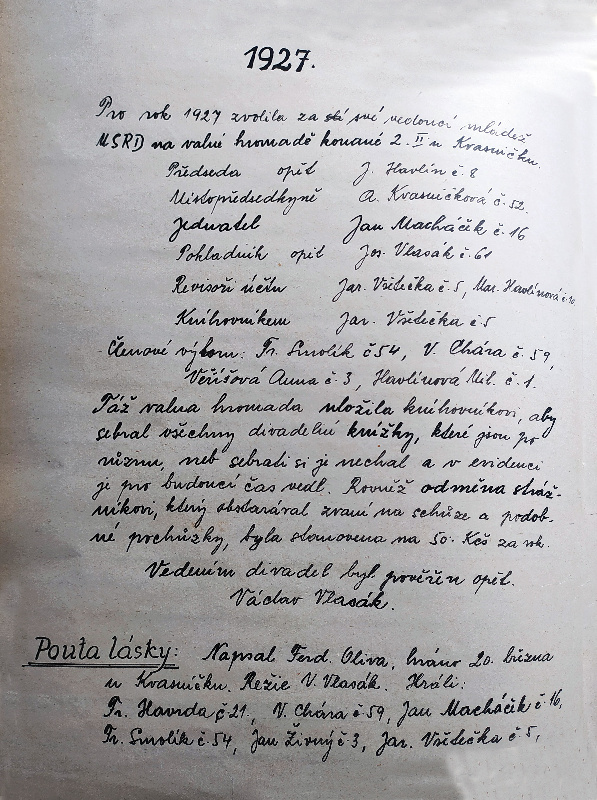 1927.
Pro rok 1927 zvolila za své vedoucí mládež
MSRD na valné hromadě konané 2. II u Krasničku.
Předseda opět J. Havlín č. 8
Místopředsedkyně A. Krasničková č. 52.
Jednatel Jan Macháček č. 16
Pokladník opět Jos. Vlasák č. 61
Revisoři účtu Jar. Všetečka č. 5, Mar. Havlínová č. 10
Knihovníkem Jar. Všetečka č. 5
Členové výborn: Fr. Smolík č 54, V. Chára č. 59,
Veříšová Anna č. 3, Havlínová Mil. č. 1.
Táž valna hromada uložila knihovníkovi, aby
sebral všechny divadelní knížky, které jsou po
různu, neb sebrati si je nechal a v evidenci
je pro budoucí čas vedl. Rovněž odměna stráž-
níkovi, který obstarával zvaní na schůze a podob-
né pochůzky, byla stanovena na 50. Kčs za rok.
Vedením divadel byl pověřen opět.
Václav Vlasák.
Pouta lásky: Napsal Ferd. Oliva, hráno 20. března
u Krasničku. Režie V. Vlasák. Hráli:
Fr. Havrda č 21, V. Chára č 59, Jan Macháček č 16,
Fr. Smolík č 54, Jan Živný č 3, Jar. Všetečka č 5,